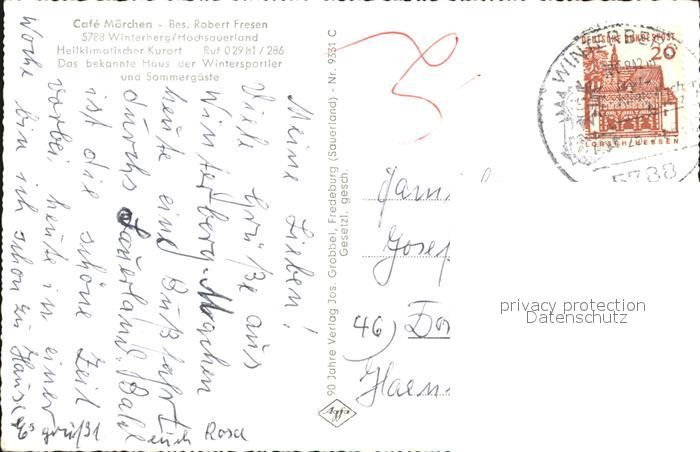 Café Märchen - Bes. Robert Fresen
5788 Winterberg/Hochsauerland
Heilklimatischer Kurort Ruf 02981/286
Das bekannte Haus der Wintersportler
und Sommergäste
Meine Lieben!
Viele Grüße aus
Winterberg. Machen
heute eine Bußfahrt
durchs Sauerland. Bald
ist die schöne Zeit
vorbei, heute in einer
Woche bin ich schon zu Hause
Es grüßt euch Rosa
90 Jahre Verlag Jos. Grobbel, Fredeburg (Sauerland) - Nr. 9331 C
Gesetzl. gesch.
Agfa
DEUTSCHE BUNDESPOST
20
LORSCH/HESSEN
WINTERBERG
5788
Fami
Josef
46) Do
Haen
privacy protection
Datenschutz